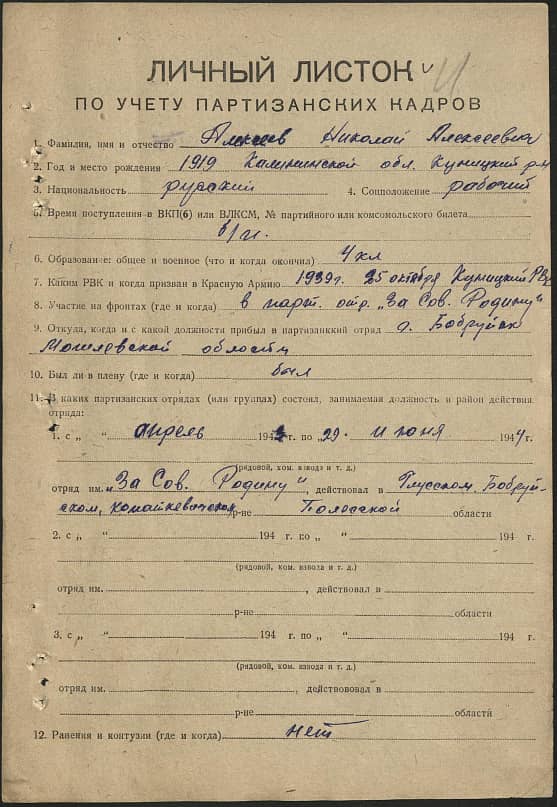 ЛИЧНЫЙ ЛИСТОК
ПО УЧЕТУ ПАРТИЗАНСКИХ КАДРОВ
1. Фамилия, имя и отчество Алексеев Николай Алексеевич
2. Год и место рождения 1919 Калининской обл. Куницкий р-н
3. Национальность русский 4. Соцположение рабочий
5. Время поступления в ВКП(б) или ВЛКСМ, № партийного или комсомольского билета
б/п.
6. Образование: общее и военное (что и когда окончил) 4 кл
7. Каким РВК и когда призван в Красную Армию 1939г. 25 октября Куницкий РВК
8. Участие на фронтах (где и когда) в парт. отр. „За Сов. Родину"
9. Откуда, когда и с какой должности прибыл в партизанкий отряд г. Бобруйск
Могилевской области
10. Был ли в плену (где и когда) был
11. В каких партизанских отрядах (или группах) состоял, занимаемая должность и район действия
отряда:
1. с „ " апрель 1943 г. по „29" июня 1944 г.
(рядовой, ком. взвода и т. д.)
отряд им. „За Сов. Родину", действовал в Глусском, Бобруй-
ском, р-не Полесской области
2. с „ " 194 г. по „ " 194 г.
(рядовой, ком. взвода и т. д.)
отряд им. , действовал в
р-не области
3. с „ " 194 г. по „ " 194 г.
(рядовой, ком. взвода и т. д.)
отряд им. , действововал в
р-не области
12. Ранения и контузии (где и когда) нет